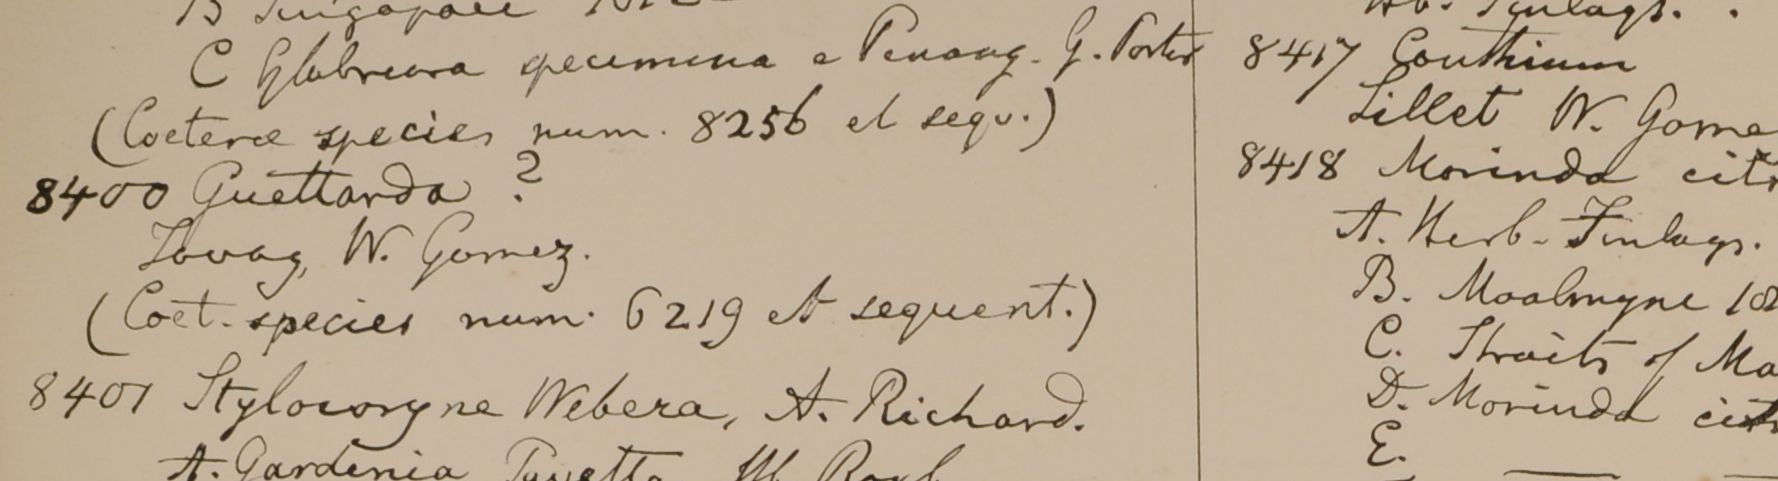 B Singapore
C Glabriora specimina e Penang. G. Porter
(Coeterae species num. 8256 et sequ.)
8400 Guettarda ?
Tavay, W. Gomez.
(Coet. species num. 6219 et sequent.)
8401 Stylocoryne Webera, A. Richard.
A. Gardenia
Hb. Finlays.
8417 Conthium
Lillet W. Gome
8418 Morinda citr
A. Herb. Finlays.
B. Moalmyne 182
C. Straits of Ma
D. Morinda citr
E.